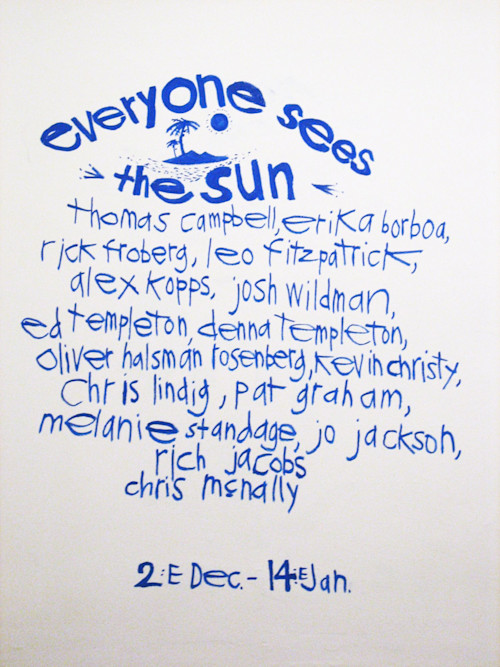 everyone sees
the sun
thomas campbell, erika borboa,
rick froberg, leo fitzpatrick,
alex kopps, josh wildman,
ed templeton, denna templeton,
oliver halsman rosenberg, kevin christy,
chris lindig, pat graham,
melanie standage, jo jackson,
rich jacobs
chris mcnally
2:E Dec. - 14:E Jan.